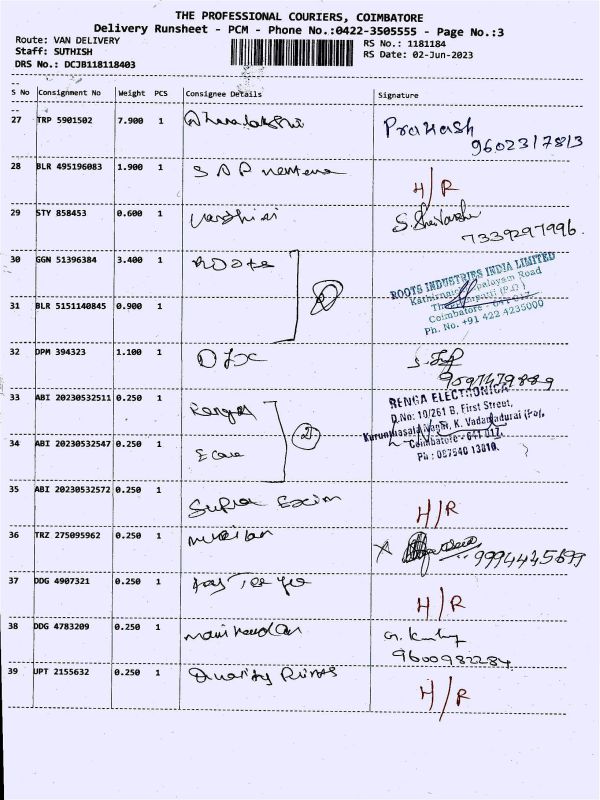 THE PROFESSIONAL COURIERS, COIMBATORE
Delivery Runsheet - PCM - Phone No.:0422-3505555 - Page No.:3
Route: VAN DELIVERY
RS No.: 1181184
Staff: SUTHISH
RS Date: 02-Jun-2023
DRS No.: DCJB118118403
S No Consignment No Weight PCS Consignee Details Signature
27 TRP 5901502 7.900 1 Dhanalakshmi Prakash
9602317813
28 BLR 495196083 1.900 1 S A P H/R
29 STY 858453 0.600 1 Varshini
7339297996
30 GGN 51396384 3.400 1 Roots
ROOTS INDUSTRIES INDIA LIMITED
Coimbatore - 641 017.
Ph. No. +91 422 4235000
31 BLR 5151140845 0.900 1
32 DPM 394323 1.100 1
33 ABI 20230532511 0.250 1 Renga
RENGA ELECTRONICA
D.No: 10/261 B, First Street,
34 ABI 20230532547 0.250 1 E Care 2
Coimbatore - 641 017.
Ph : 087540 13010.
35 ABI 20230532572 0.250 1 Supra Exim H/R
36 TRZ 275095962 0.250 1 9994445699
37 DDG 4907321 0.250 1 Jay Tee Yee H/R
38 DDG 4783209 0.250 1
9600982284
39 UPT 2155632 0.250 1 Quality H/R